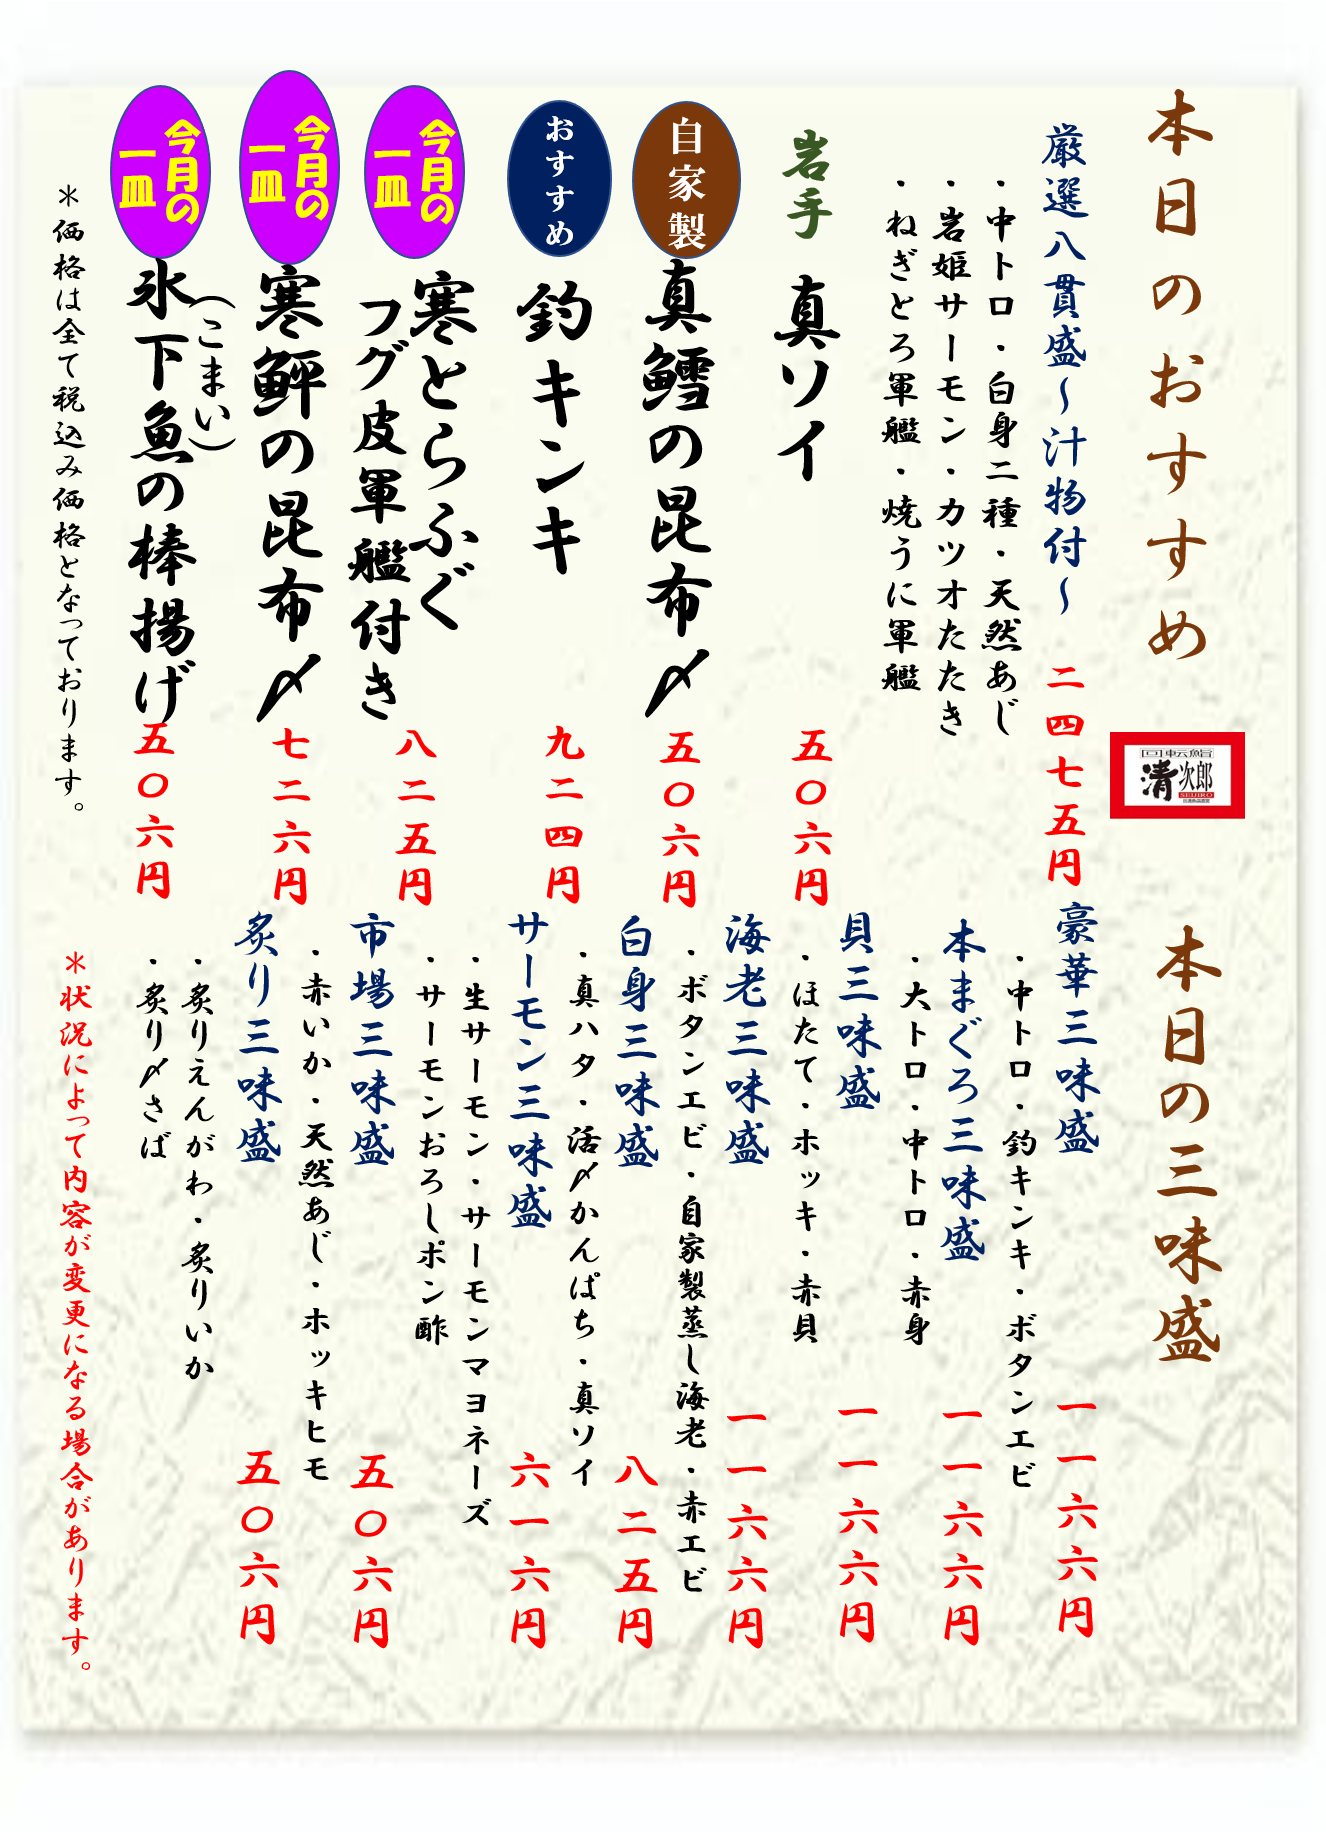 本日のおすすめ
回転鮨
清次郎
SEIJIRO
厳選八貫盛～汁物付～ 二四七五円
・中トロ・白身二種・天然あじ
・岩姫サーモン・カツオたたき
・ねぎとろ軍艦・焼うに軍艦
岩手
真ソイ
五〇六円
自家製
真鱈の昆布〆
五〇六円
おすすめ
釣キンキ
九二四円
今月の
一皿
寒とらふぐ
フグ皮軍艦付き
八二五円
今月の
一皿
寒鮃の昆布〆
七二六円
今月の
一皿
(こまい)
氷下魚の棒揚げ
五〇六円
＊価格は全て税込み価格となっております。
本日の三味盛
豪華三味盛 一一六六円
・中トロ・釣キンキ・ボタンエビ
本まぐろ三味盛 一一六六円
・大トロ・中トロ・赤身
貝三味盛 一一六六円
・ほたて・ホッキ・赤貝
海老三味盛 一一六六円
・ボタンエビ・自家製蒸し海老・赤エビ
白身三味盛 八二五円
・真ハタ・活〆かんぱち・真ソイ
サーモン三味盛 六一六円
・生サーモン・サーモンマヨネーズ
・サーモンおろしポン酢
市場三味盛 五〇六円
・赤いか・天然あじ・ホッキヒモ
炙り三味盛 五〇六円
・炙りえんがわ・炙りいか
・炙り〆さば
＊状況によって内容が変更になる場合があります。